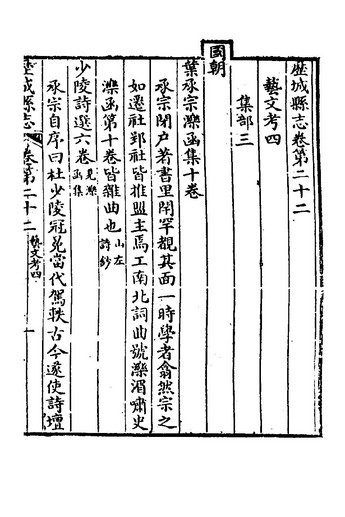 歷城縣志卷第二十二
藝文考四
集部三
國朝
葉承宗濼函集十卷
承宗閉户著書里閈罕覩其面一時學者翕然宗之
如遷社郢社皆推盟主焉工南北詞曲號濼湄嘯史
濼函第十卷皆雜曲也山左詩鈔
少陵詩選六卷見濼函集
承宗自序曰杜少陵冠冕當代駕軼古今遂使詩壇
歷城縣志 卷第二十二 藝文考四 一